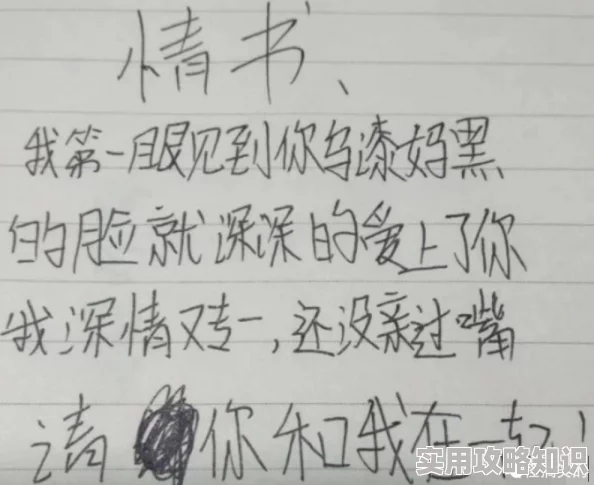 情书、
我第一眼见到你乌漆妈黑
的脸就深深的爱上了你
我深情又专一,还没亲过嘴
请你和我在一起!
实用攻略知识